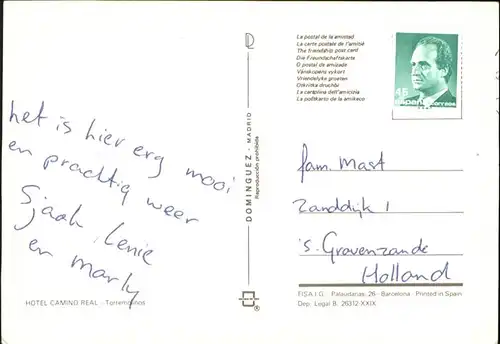 het is hier erg mooi
en prachtig weer
Sjaak, Lenie
en Marly
HOTEL CAMINO REAL - Torremolinos
DOMINGUEZ - MADRID
Reproducción prohibida
La postal de la amistad
La carte postale de l'amitié
The friendship post card
Die Freundschaftskarte
O postal de amizade
Vänskapens vykort
Vriendelyke groeten
La cartolina dell'amicizia
La poŝtkarto de la amikeco
45
España correos
fam. Mast
Zanddijk 1
's Gravenzande
Holland
FISA I.G. Palaudarias, 26 - Barcelona - Printed in Spain
Dep. Legal B. 26312-XXIX